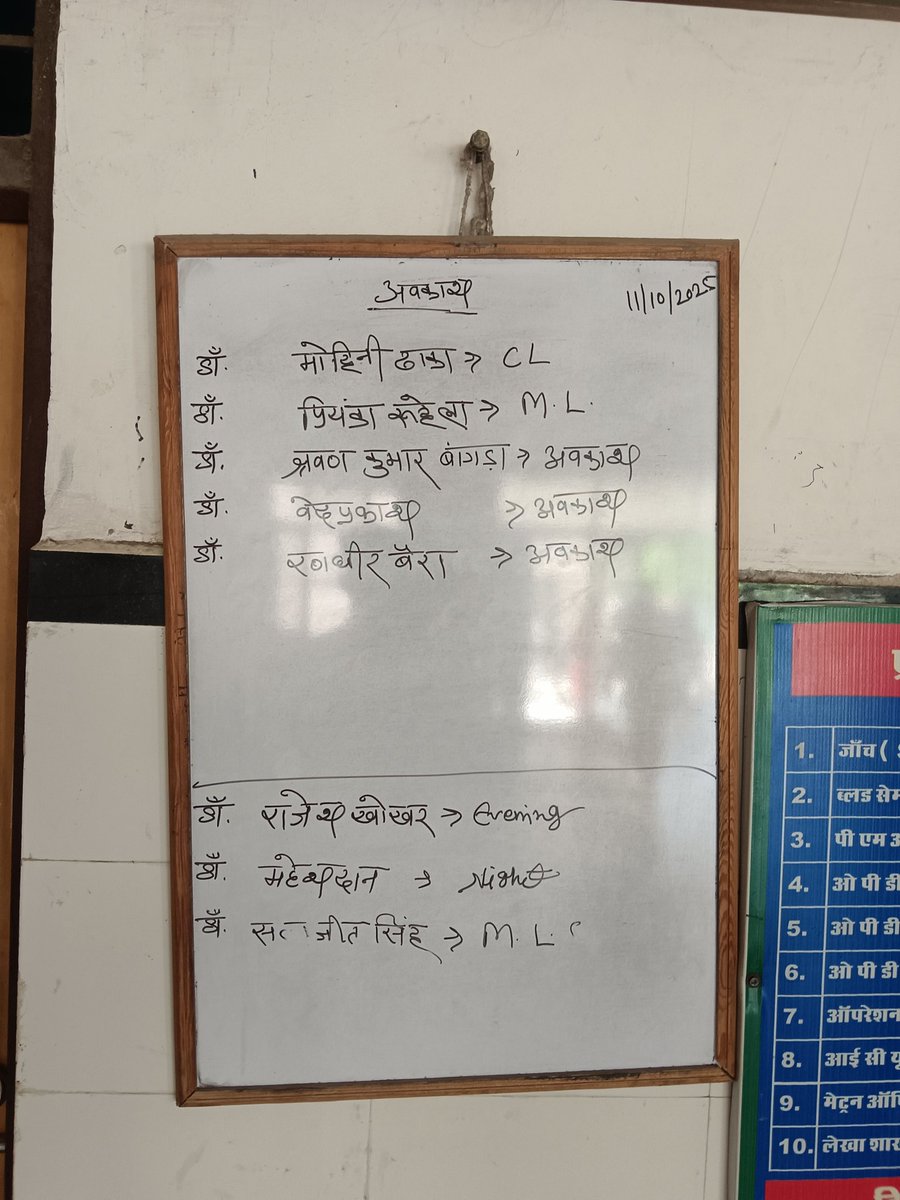 अवकाश
11/10/2025
डॉ. मोहिनी ढाका → CL
डॉ. प्रियंका रूहेला → M.L.
डॉ. श्रवण कुमार बांगड़ा → अवकाश
डॉ. वेदप्रकाश → अवकाश
डॉ. रणधीर बैरा → अवकाश
डॉ. राजेश खोखर → Evening
डॉ. महेशदान → Night
डॉ. जीत सिंह → M.L.
1. जाँच (
2. ब्लड
3. पी एम
4. ओ पी डी
5. ओ पी डी
6. ओ पी डी
7. ऑपरेशन
8. आई सी यू
9. मेट्रन
10. लेखा